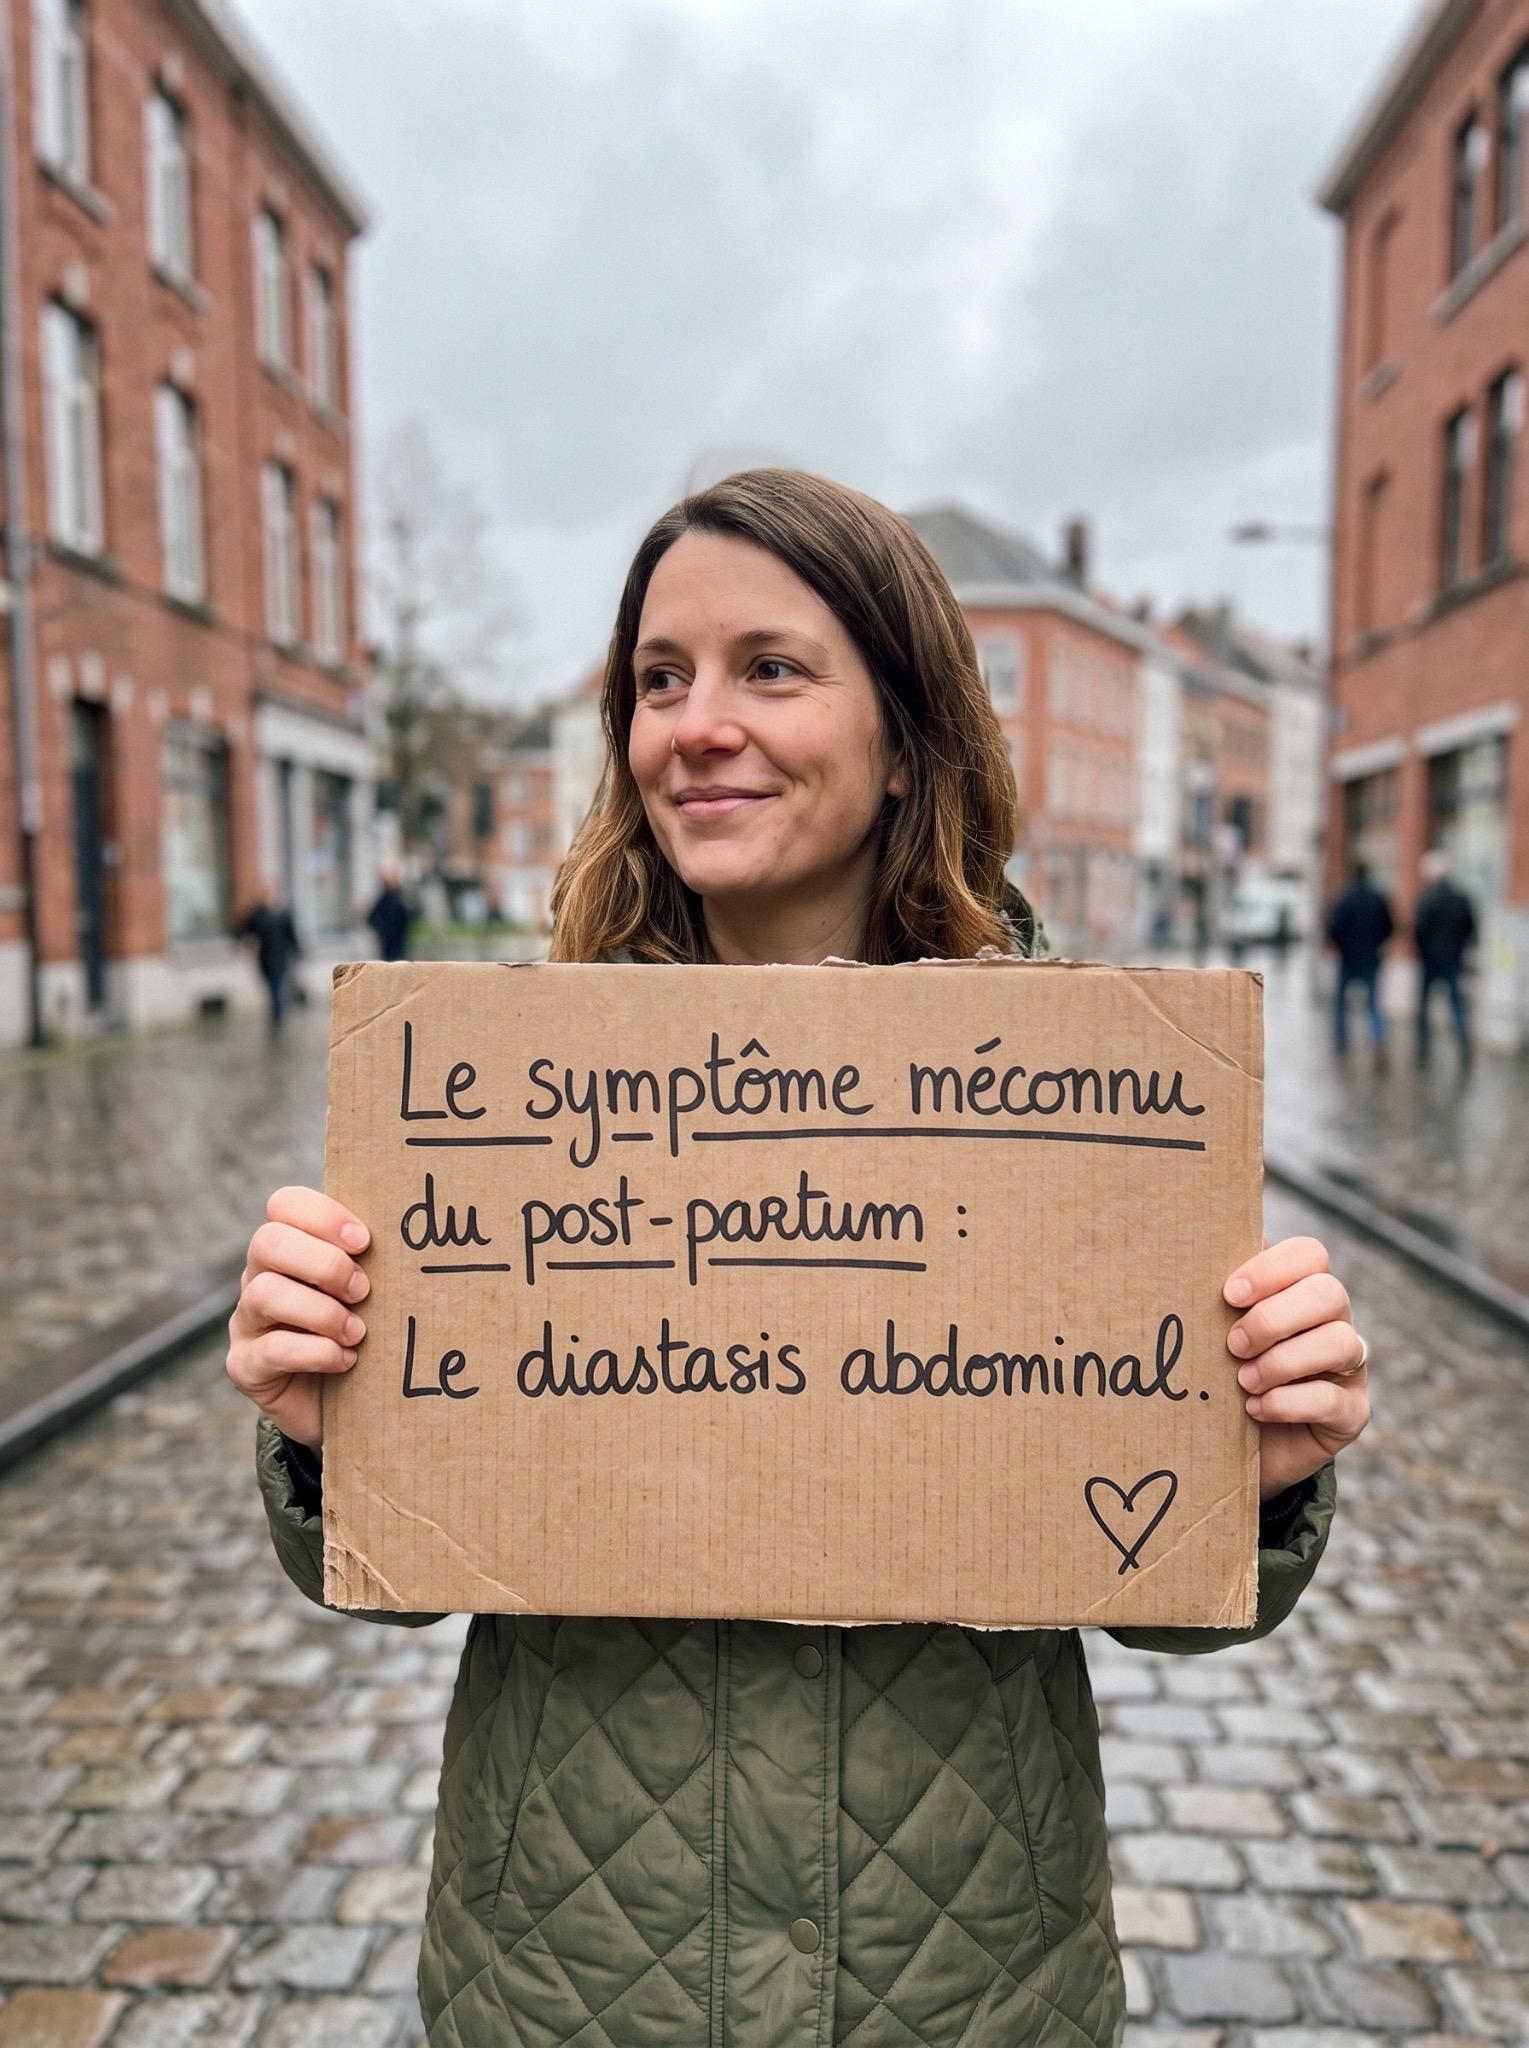 Le symptôme méconnu
du post-partum :
Le diastasis abdominal.